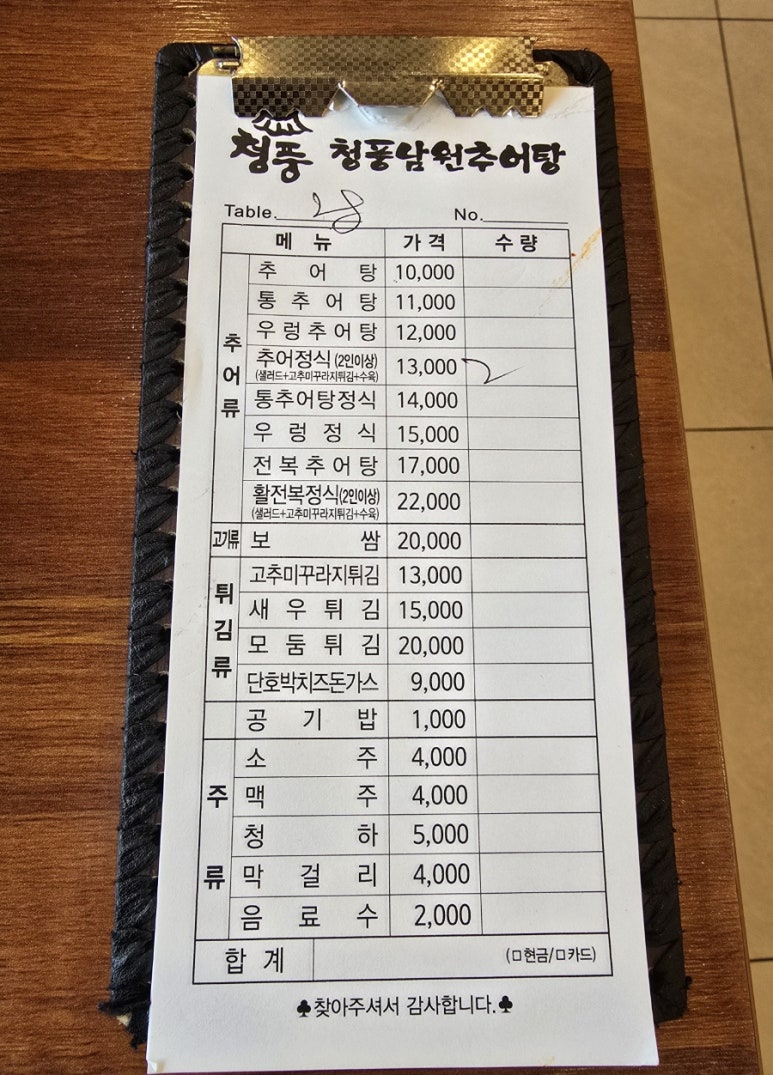 청풍 청풍남원추어탕
Table. No.
메 뉴 가 격 수 량
추어류
추 어 탕 10,000
통 추 어 탕 11,000
우렁추어탕 12,000
추어정식 (2인이상) 13,000 2
(샐러드+고추미꾸라지튀김+수육)
통추어탕정식 14,000
우 렁 정 식 15,000
전복추어탕 17,000
활전복정식(2인이상) 22,000
(샐러드+고추미꾸라지튀김+수육)
고기류 보 쌈 20,000
튀김류
고추미꾸라지튀김 13,000
새 우 튀 김 15,000
모 둠 튀 김 20,000
단호박치즈돈가스 9,000
공 기 밥 1,000
주류
소 주 4,000
맥 주 4,000
청 하 5,000
막 걸 리 4,000
음 료 수 2,000
합 계 (□현금/□카드)
♣찾아주셔서 감사합니다.♣